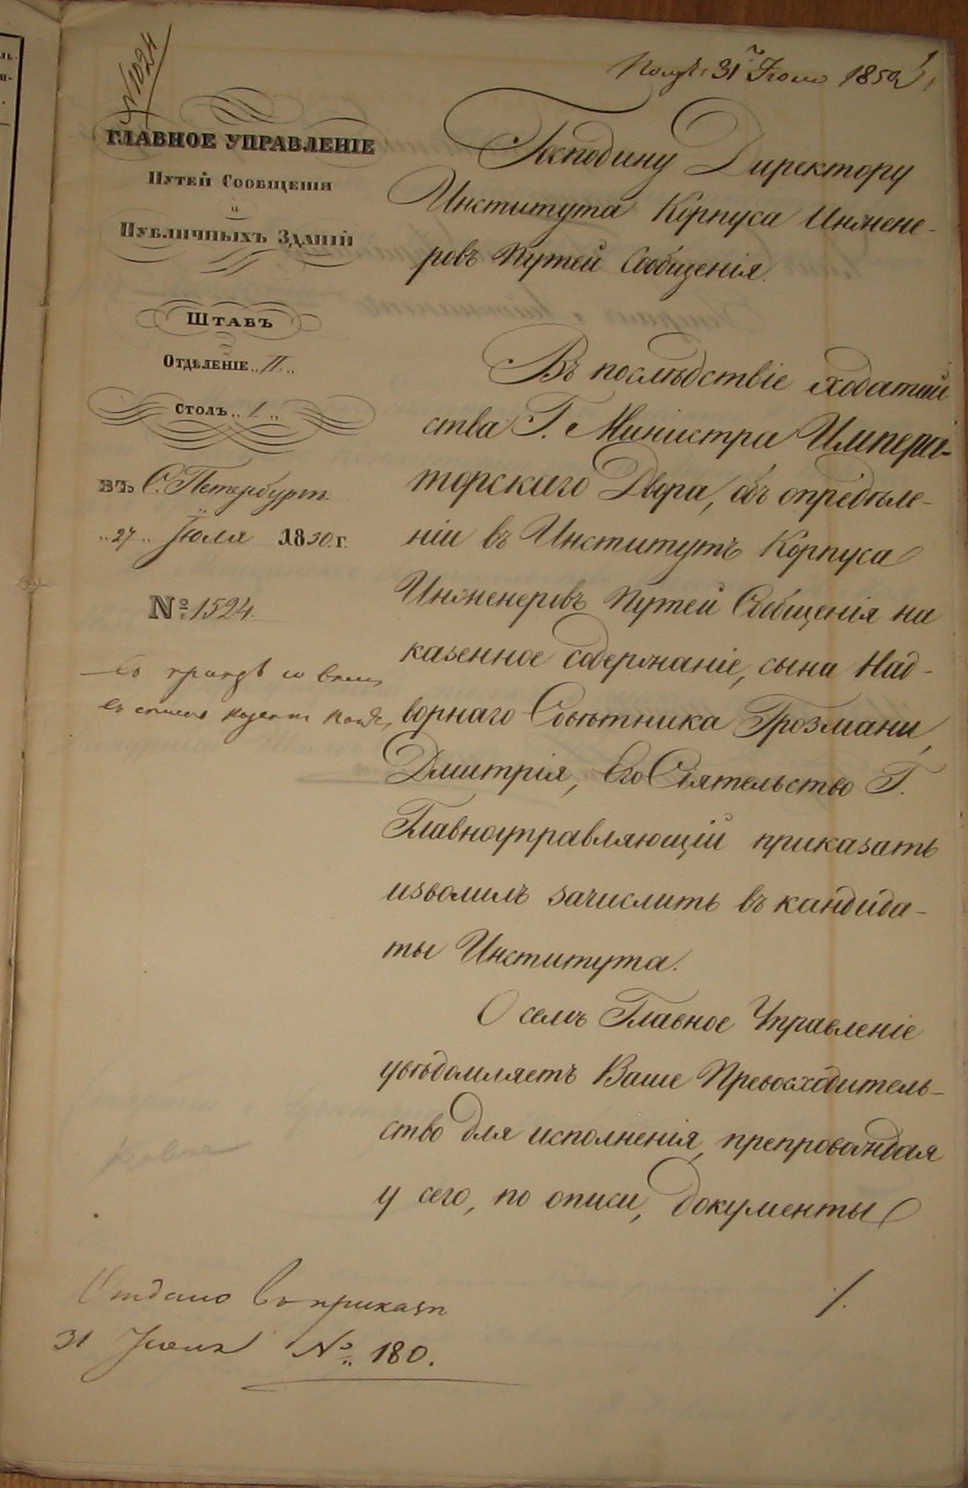 № 1024
31 Іюля 1850 г.
ГЛАВНОЕ УПРАВЛЕНІЕ
ПУТЕЙ СООБЩЕНІЯ
и
ПУБЛИЧНЫХЪ ЗДАНІЙ
ШТАБЪ
ОТДѢЛЕНІЕ „ II. „
СТОЛЪ „ 1. „
ВЪ С. Петербургѣ.
„ 27 „ Іюля 1850. г.
№ 1524.
Господину Директору
Института Корпуса Инжене-
ровъ Путей Сообщенія.
Въ послѣдствіе ходатай
ства Г. Министра Импера-
торскаго Двора, объ опредѣле-
ніи въ Институтъ Корпуса
Инженеровъ Путей Сообщенія на
казенное содержаніе, сына Над-
ворнаго Совѣтника Грозмани,
Дмитрія, Его Сіятельство Г.
Главноуправляющій приказать
изволилъ зачислить въ кандида-
ты Института.
О семъ Главное Управленіе
увѣдомляетъ Ваше Превосходитель-
ство для исполненія, препровождая
у сего, по описи, документы
/.
Отдано въ приказѣ
31 Іюля № 180.